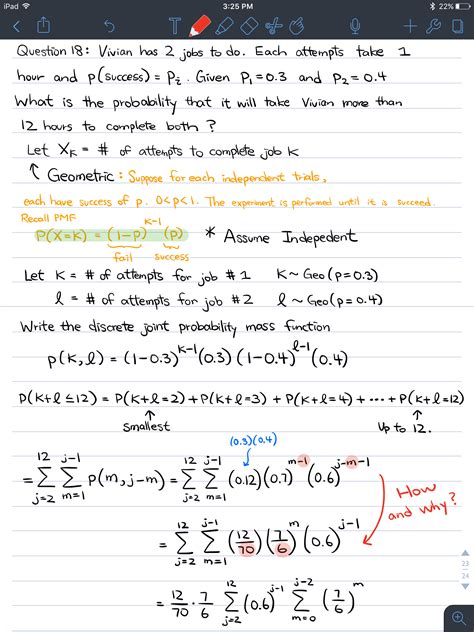 iPad 3:25 PM 22%
Question 18: Vivian has 2 jobs to do. Each attempts take 1
hour and p(success) = Pi. Given P₁=0.3 and P₂=0.4
What is the probability that it will take Vivian more than
12 hours to complete both?
Let X_K = # of attempts to complete job K
↑ Geometric: Suppose for each independent trials,
each have success of p. 0<p<1. The experiment is performed until it is succeed.
Recall PMF
P(X=K) = (1-P)^(K-1) (P) * Assume Indepedent
fail success
Let K = # of attempts for job #1 K~Geo(P=0.3)
ℓ = # of attempts for job #2 ℓ~Geo(P=0.4)
Write the discrete joint probability mass function
p(k,ℓ) = (1-0.3)^(k-1) (0.3) (1-0.4)^(ℓ-1) (0.4)
P(k+ℓ≤12) = P(k+ℓ=2) + P(k+ℓ=3) + P(k+ℓ=4) + ... + P(k+ℓ=12)
↑ ↑
Smallest Up to 12.
(0.3)(0.4)
= Σ_{j=2}^{12} Σ_{m=1}^{j-1} P(m, j-m) = Σ_{j=2}^{12} Σ_{m=1}^{j-1} (0.12)(0.7)^(m-1) (0.6)^(j-m-1)
How
and why?
= Σ_{j=2}^{12} Σ_{m=1}^{j-1} (12/70)(7/6)^m (0.6)^(j-1)
= 12/70 · 7/6 Σ_{j=2}^{12} (0.6)^(j-1) Σ_{m=0}^{j-2} (7/6)^m
23
24